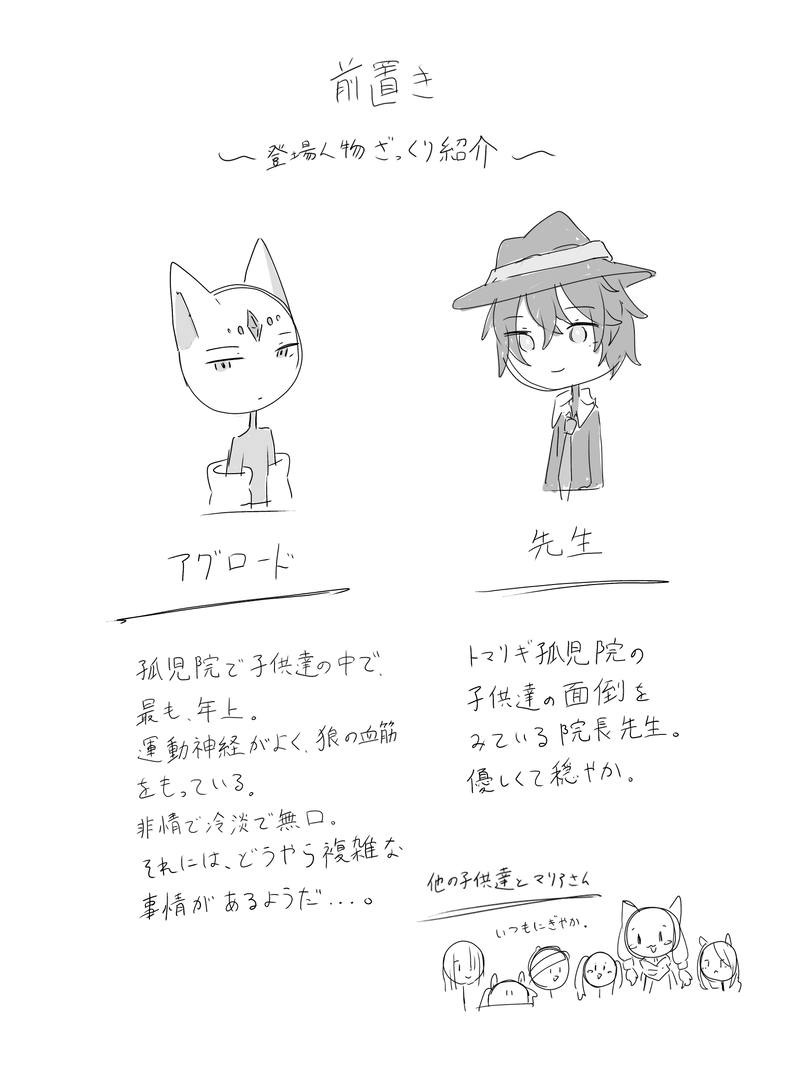 前置き
〜 登場人物ざっくり紹介 〜
アグロード
孤児院で子供達の中で、
最も、年上。
運動神経がよく、狼の血筋
をもっている。
非情で冷淡で無口。
それには、どうやら複雑な
事情があるようだ...。
先生
トマリギ孤児院の
子供達の面倒を
みている院長先生。
優しくて穏やか。
他の子供達とマリアさん
いつもにぎやか。